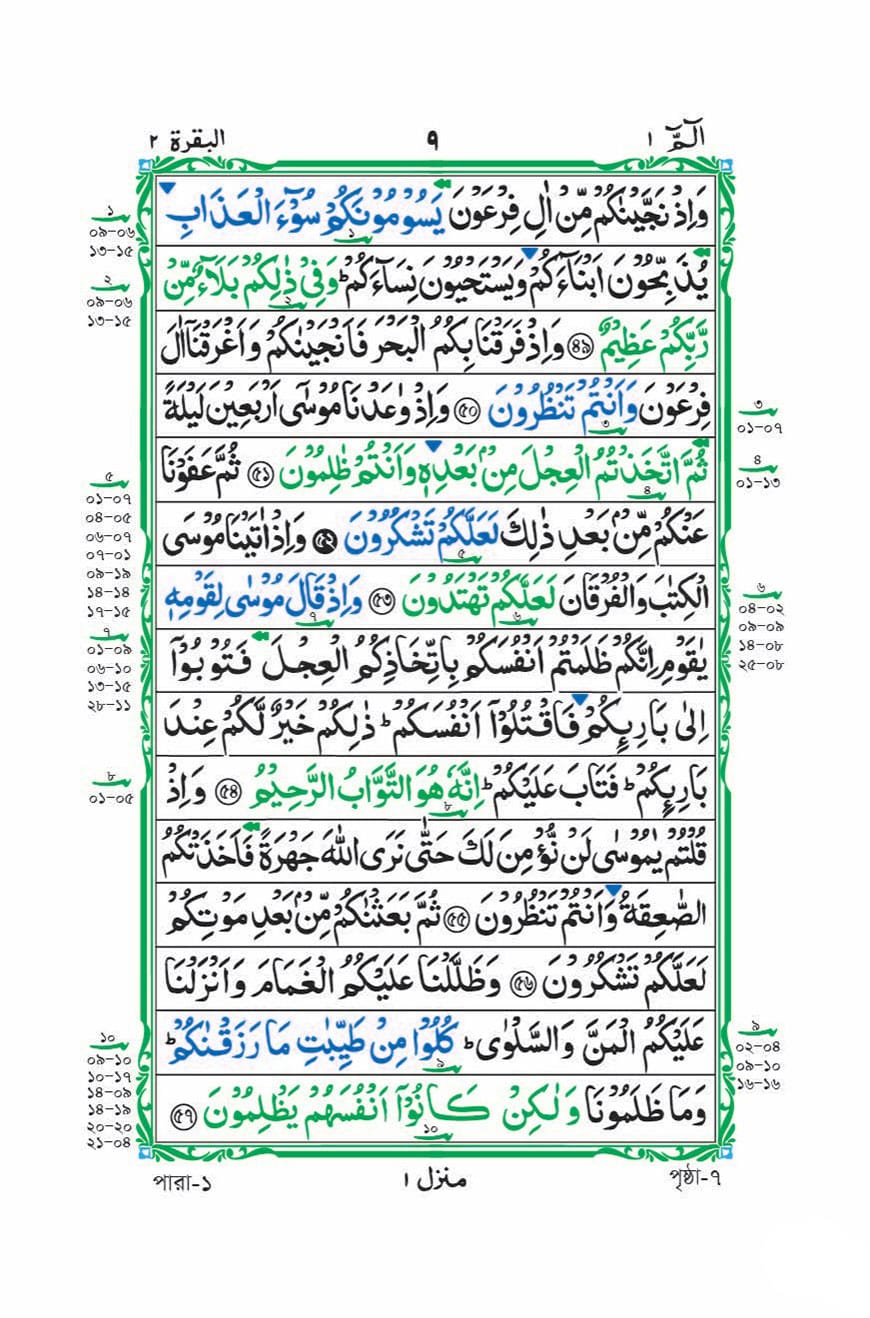 الٓمّٓ ١
٩
البقرة ٢
وَاِذْ نَجَّيْنٰكُمْ مِّنْ اٰلِ فِرْعَوْنَ يَسُوْمُوْنَكُمْ سُوْٓءَ الْعَذَابِ
يُذَبِّحُوْنَ اَبْنَآءَكُمْ وَيَسْتَحْيُوْنَ نِسَآءَكُمْ ؕ وَفِيْ ذٰلِكُمْ بَلَآءٌ مِّنْ
رَّبِّكُمْ عَظِيْمٌ ﴿٤٩﴾ وَاِذْ فَرَقْنَا بِكُمُ الْبَحْرَ فَاَنْجَيْنٰكُمْ وَاَغْرَقْنَآ اٰلَ
فِرْعَوْنَ وَاَنْتُمْ تَنْظُرُوْنَ ﴿٥٠﴾ وَاِذْ وٰعَدْنَا مُوْسٰٓى اَرْبَعِيْنَ لَيْلَةً
ثُمَّ اتَّخَذْتُمُ الْعِجْلَ مِنْۢ بَعْدِهٖ وَاَنْتُمْ ظٰلِمُوْنَ ﴿٥١﴾ ثُمَّ عَفَوْنَا
عَنْكُمْ مِّنْۢ بَعْدِ ذٰلِكَ لَعَلَّكُمْ تَشْكُرُوْنَ ﴿٥٢﴾ وَاِذْ اٰتَيْنَا مُوْسَى
الْكِتٰبَ وَالْفُرْقَانَ لَعَلَّكُمْ تَهْتَدُوْنَ ﴿٥٣﴾ وَاِذْ قَالَ مُوْسٰى لِقَوْمِهٖ
يٰقَوْمِ اِنَّكُمْ ظَلَمْتُمْ اَنْفُسَكُمْ بِاتِّخَاذِكُمُ الْعِجْلَ فَتُوْبُوْٓا
اِلٰى بَارِئِكُمْ فَاقْتُلُوْٓا اَنْفُسَكُمْ ؕ ذٰلِكُمْ خَيْرٌ لَّكُمْ عِنْدَ
بَارِئِكُمْ ؕ فَتَابَ عَلَيْكُمْ ؕ اِنَّهٗ هُوَ التَّوَّابُ الرَّحِيْمُ ﴿٥٤﴾ وَاِذْ
قُلْتُمْ يٰمُوْسٰى لَنْ نُّؤْمِنَ لَكَ حَتّٰى نَرَى اللّٰهَ جَهْرَةً فَاَخَذَتْكُمُ
الصّٰعِقَةُ وَاَنْتُمْ تَنْظُرُوْنَ ﴿٥٥﴾ ثُمَّ بَعَثْنٰكُمْ مِّنْۢ بَعْدِ مَوْتِكُمْ
لَعَلَّكُمْ تَشْكُرُوْنَ ﴿٥٦﴾ وَظَلَّلْنَا عَلَيْكُمُ الْغَمَامَ وَاَنْزَلْنَا
عَلَيْكُمُ الْمَنَّ وَالسَّلْوٰى ؕ كُلُوْا مِنْ طَيِّبٰتِ مَا رَزَقْنٰكُمْ ؕ
وَمَا ظَلَمُوْنَا وَلٰكِنْ كَانُوْٓا اَنْفُسَهُمْ يَظْلِمُوْنَ ﴿٥٧﴾
১
০৯-০৬
১৩-১৫
২
০৯-০৬
১৩-১৫
৩
০১-০৭
৪
০১-১৩
৫
০১-০৭
০৪-০৫
০৬-০৭
০৭-০১
০৯-১৯
১৪-১৪
১৭-১৫
৬
০৪-০২
০৯-০৯
১৪-০৮
২৫-০৮
৭
০১-০৯
০৬-১০
১৩-১৫
২৮-১১
৮
০১-০৫
৯
০২-০৪
০৯-১০
১৬-১৬
১০
০৯-১০
১০-১৭
১৪-০৯
১৪-১৯
২০-২০
২১-০৪
পারা-১
منزل ١
পৃষ্ঠা-৭